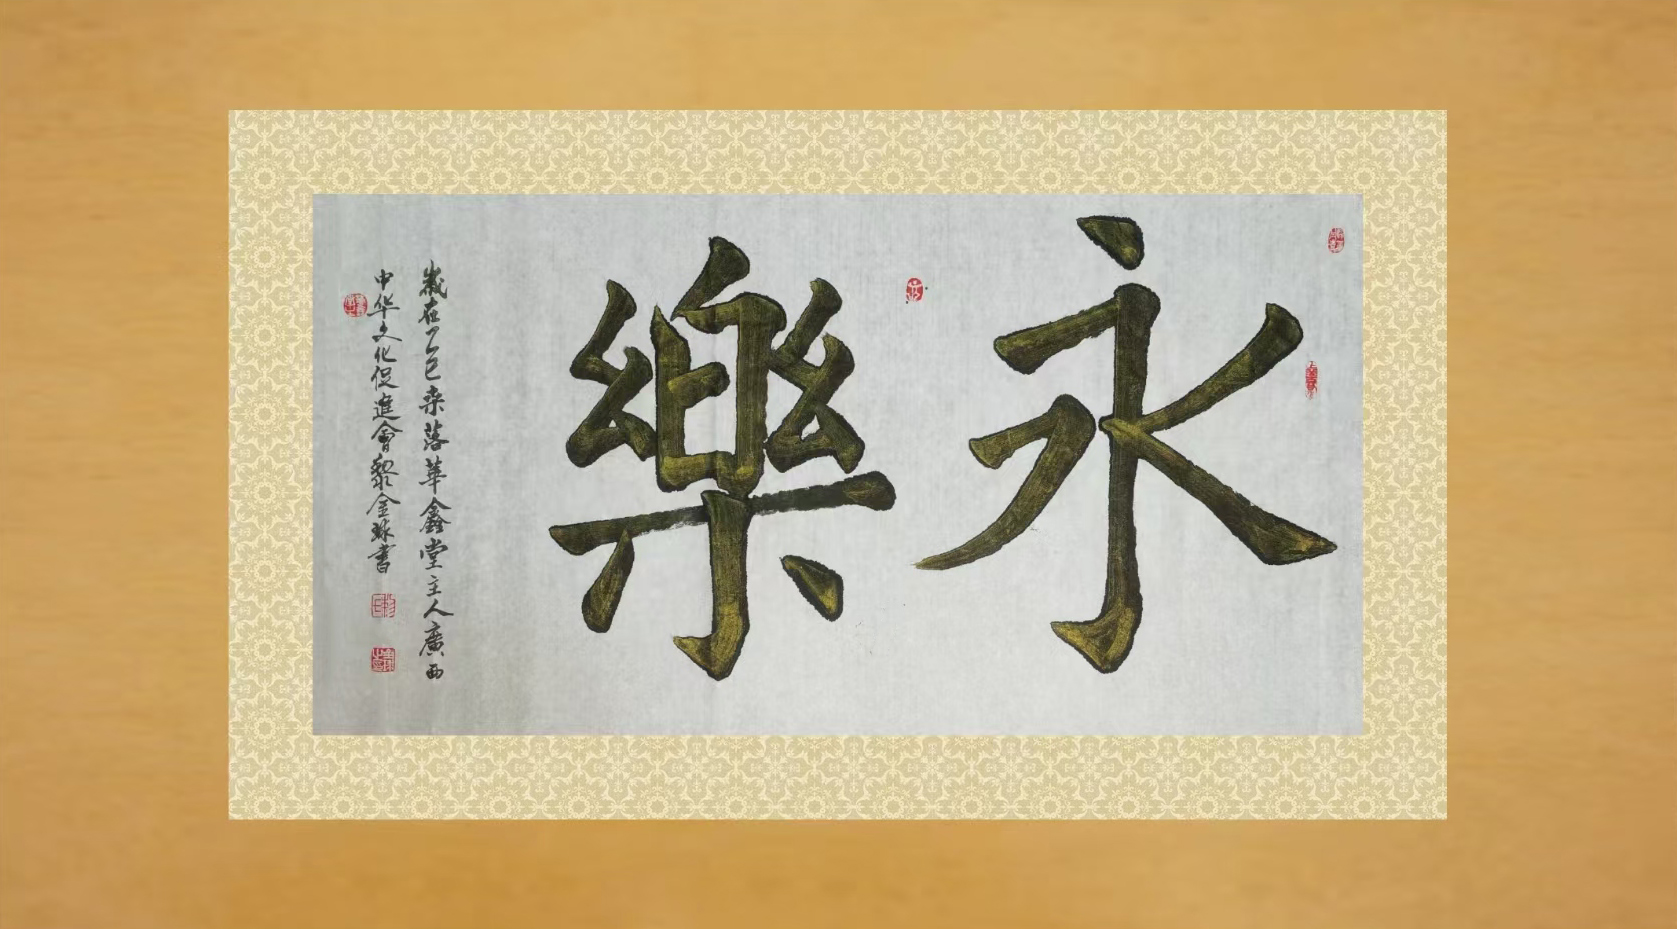 永樂
歲在乙巳桑落華鑫堂主人廣西
中华文化促進會黎金球書